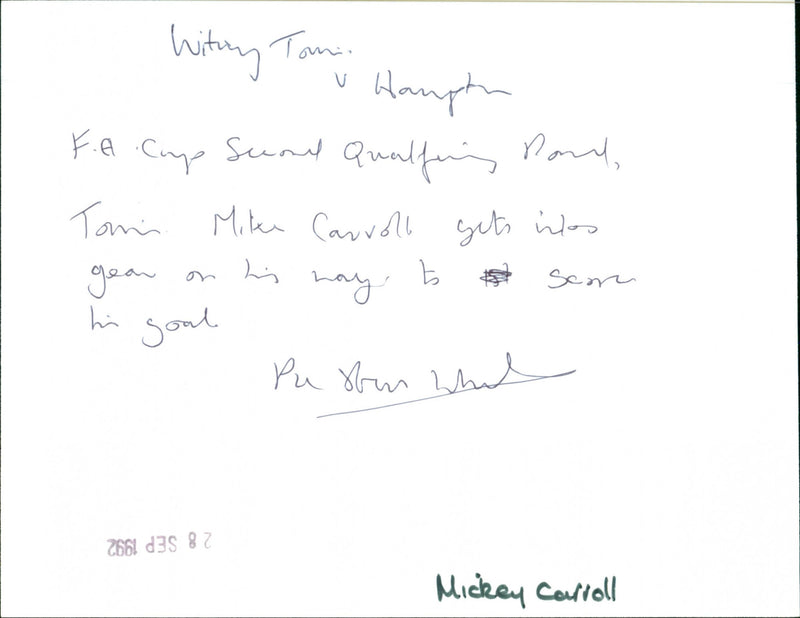 Witney Town
v Hampton
F.A. Cup Second Qualifying Round,
Town Mike Carroll gets into
gear on his way to score
his goal
Pic
28 SEP 1992
Mickey Carroll